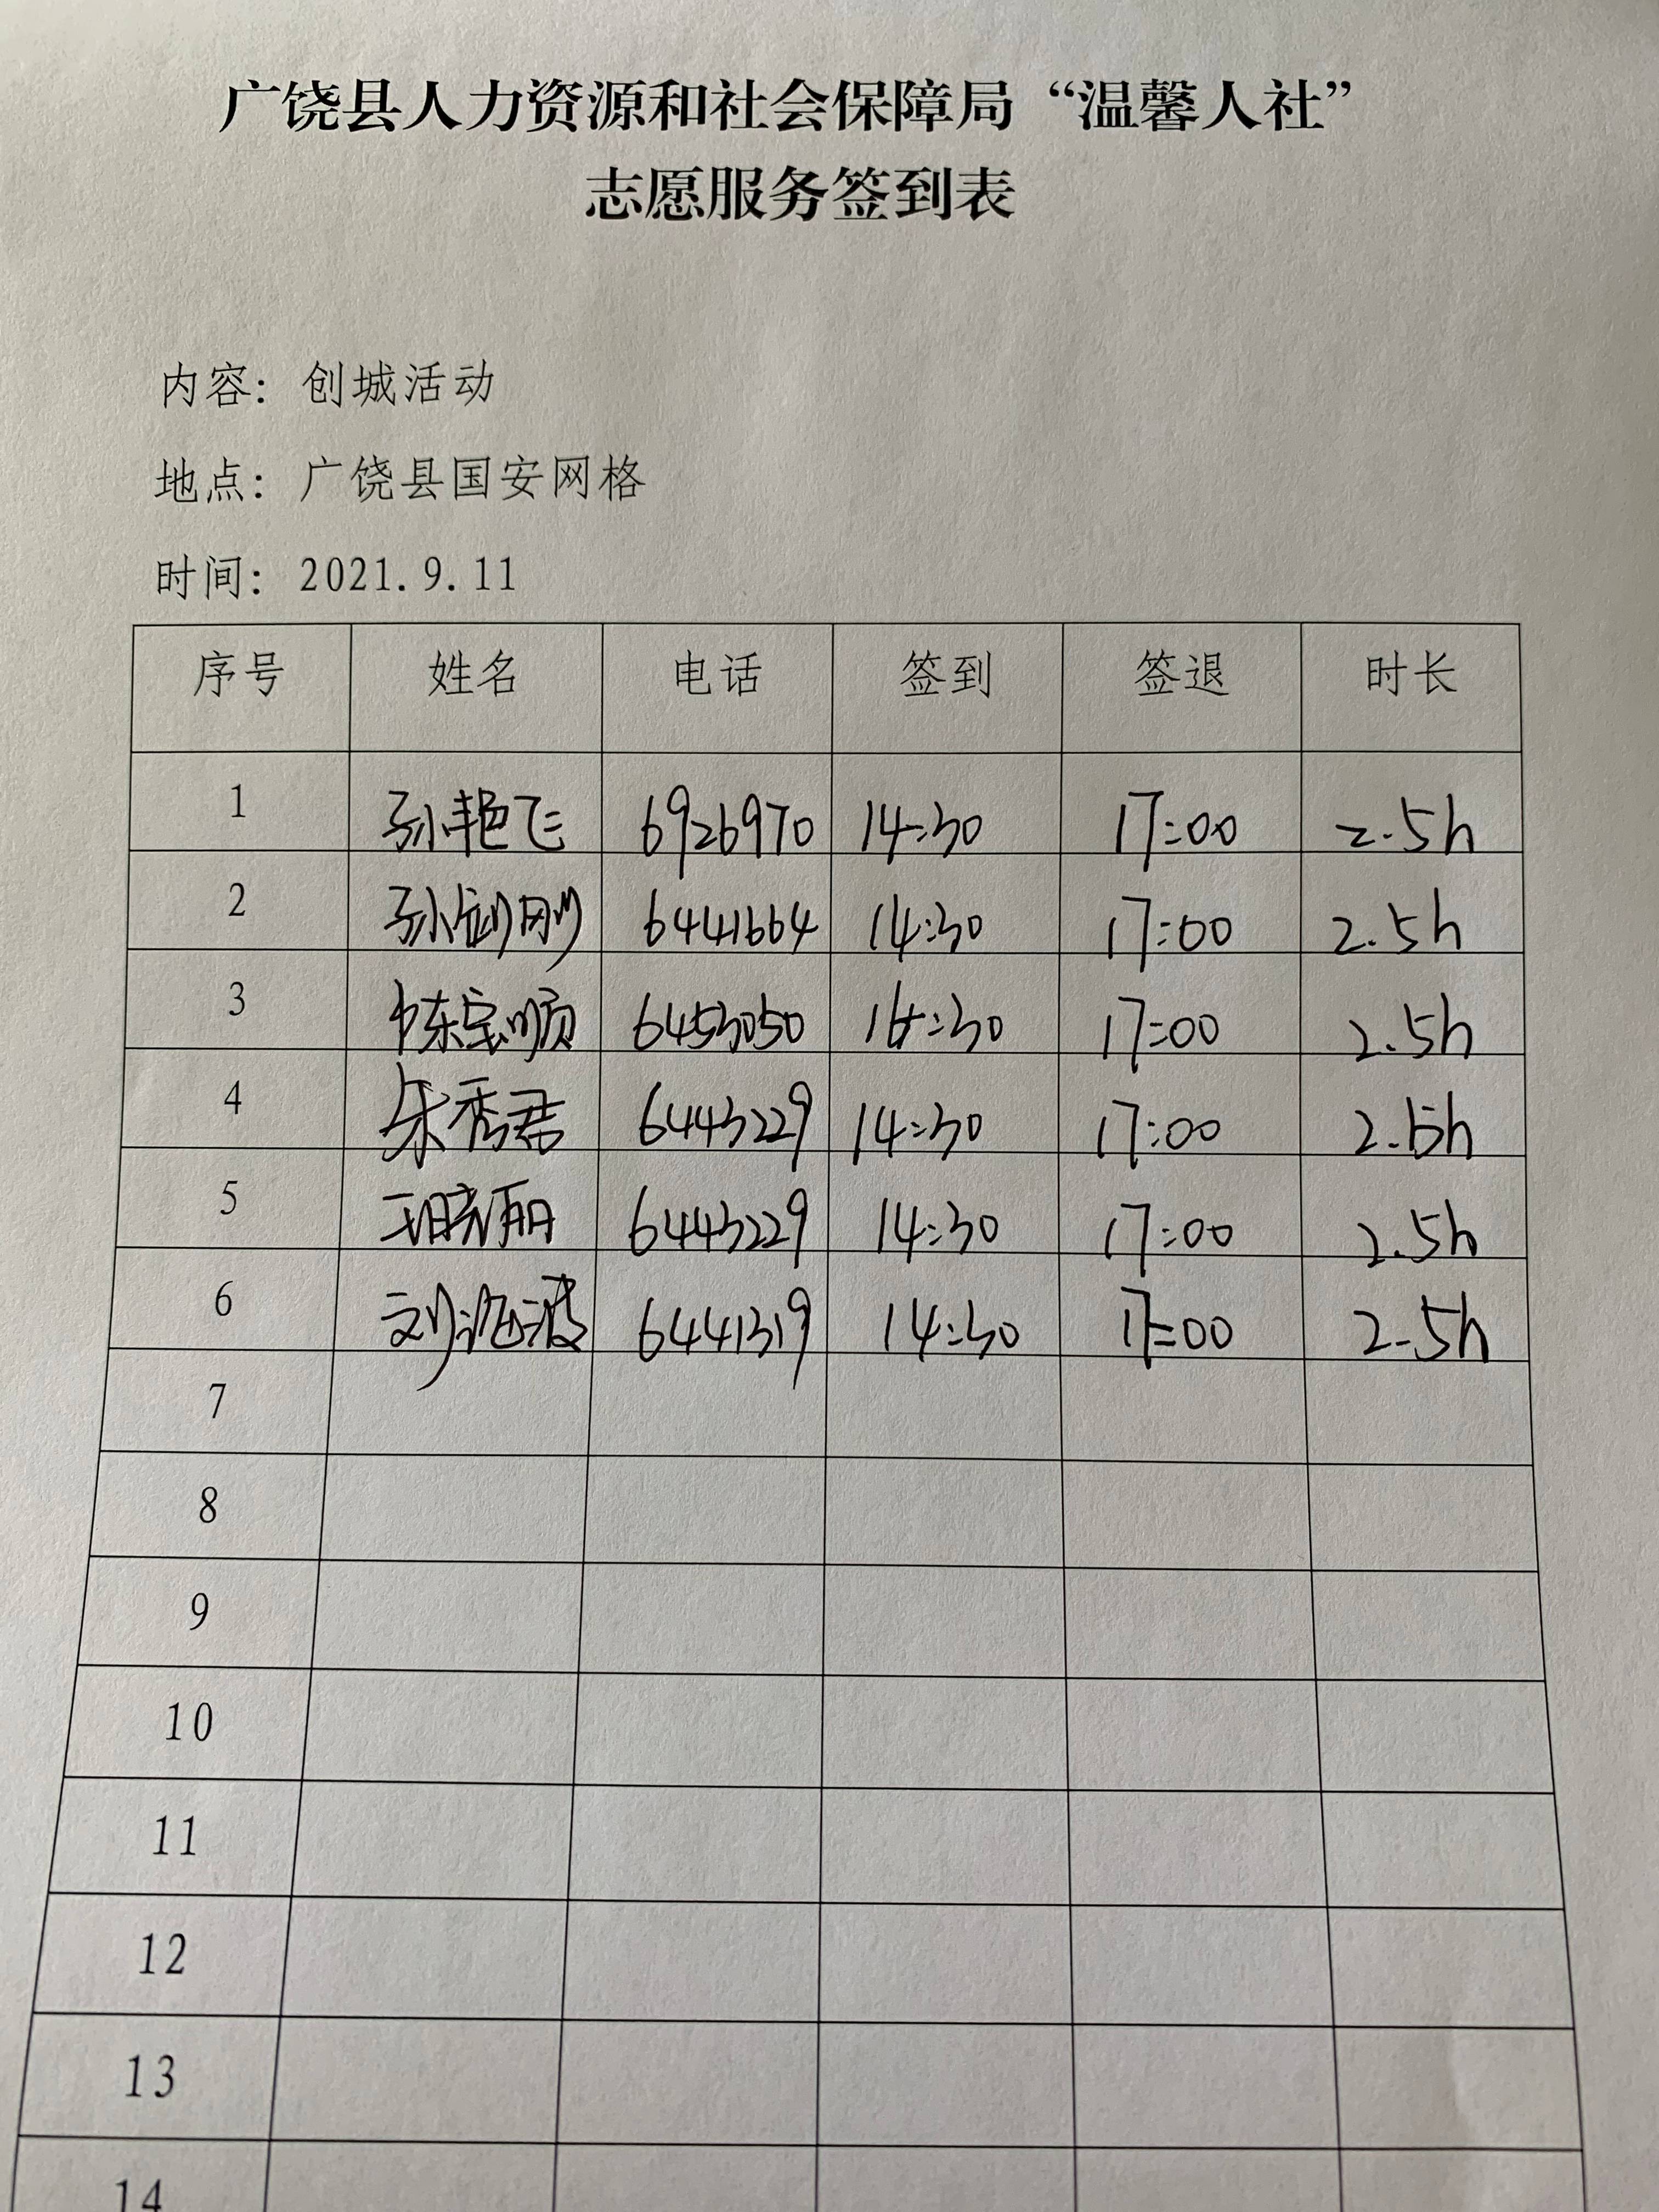 广饶县人力资源和社会保障局“温馨人社”
志愿服务签到表
内容：创城活动
地点：广饶县国安网格
时间：2021.9.11
序号 姓名 电话 签到 签退 时长
1 孙艳飞 6926970 14:30 17:00 2.5h
2 孙剑刚 6441664 14:30 17:00 2.5h
3 陈宝顺 6453050 14:30 17:00 2.5h
4 朱秀君 6443229 14:30 17:00 2.5h
5 王晓丽 6443229 14:30 17:00 2.5h
6 刘海波 6441319 14:30 17:00 2.5h
7
8
9
10
11
12
13
14